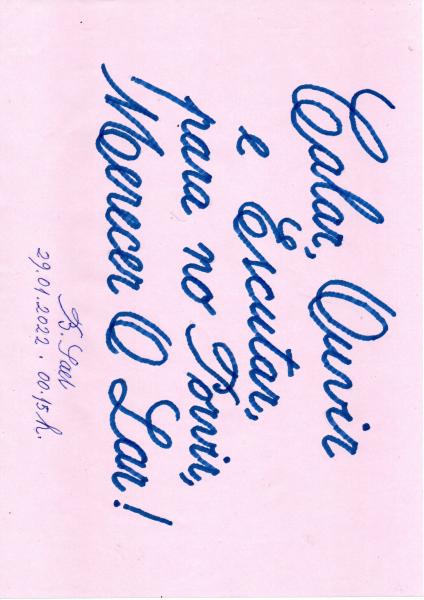 Calar, Ouvir
e Escutar,
para no Porvir,
Merecer O Lar!
29.01.2022. 00.15 h.